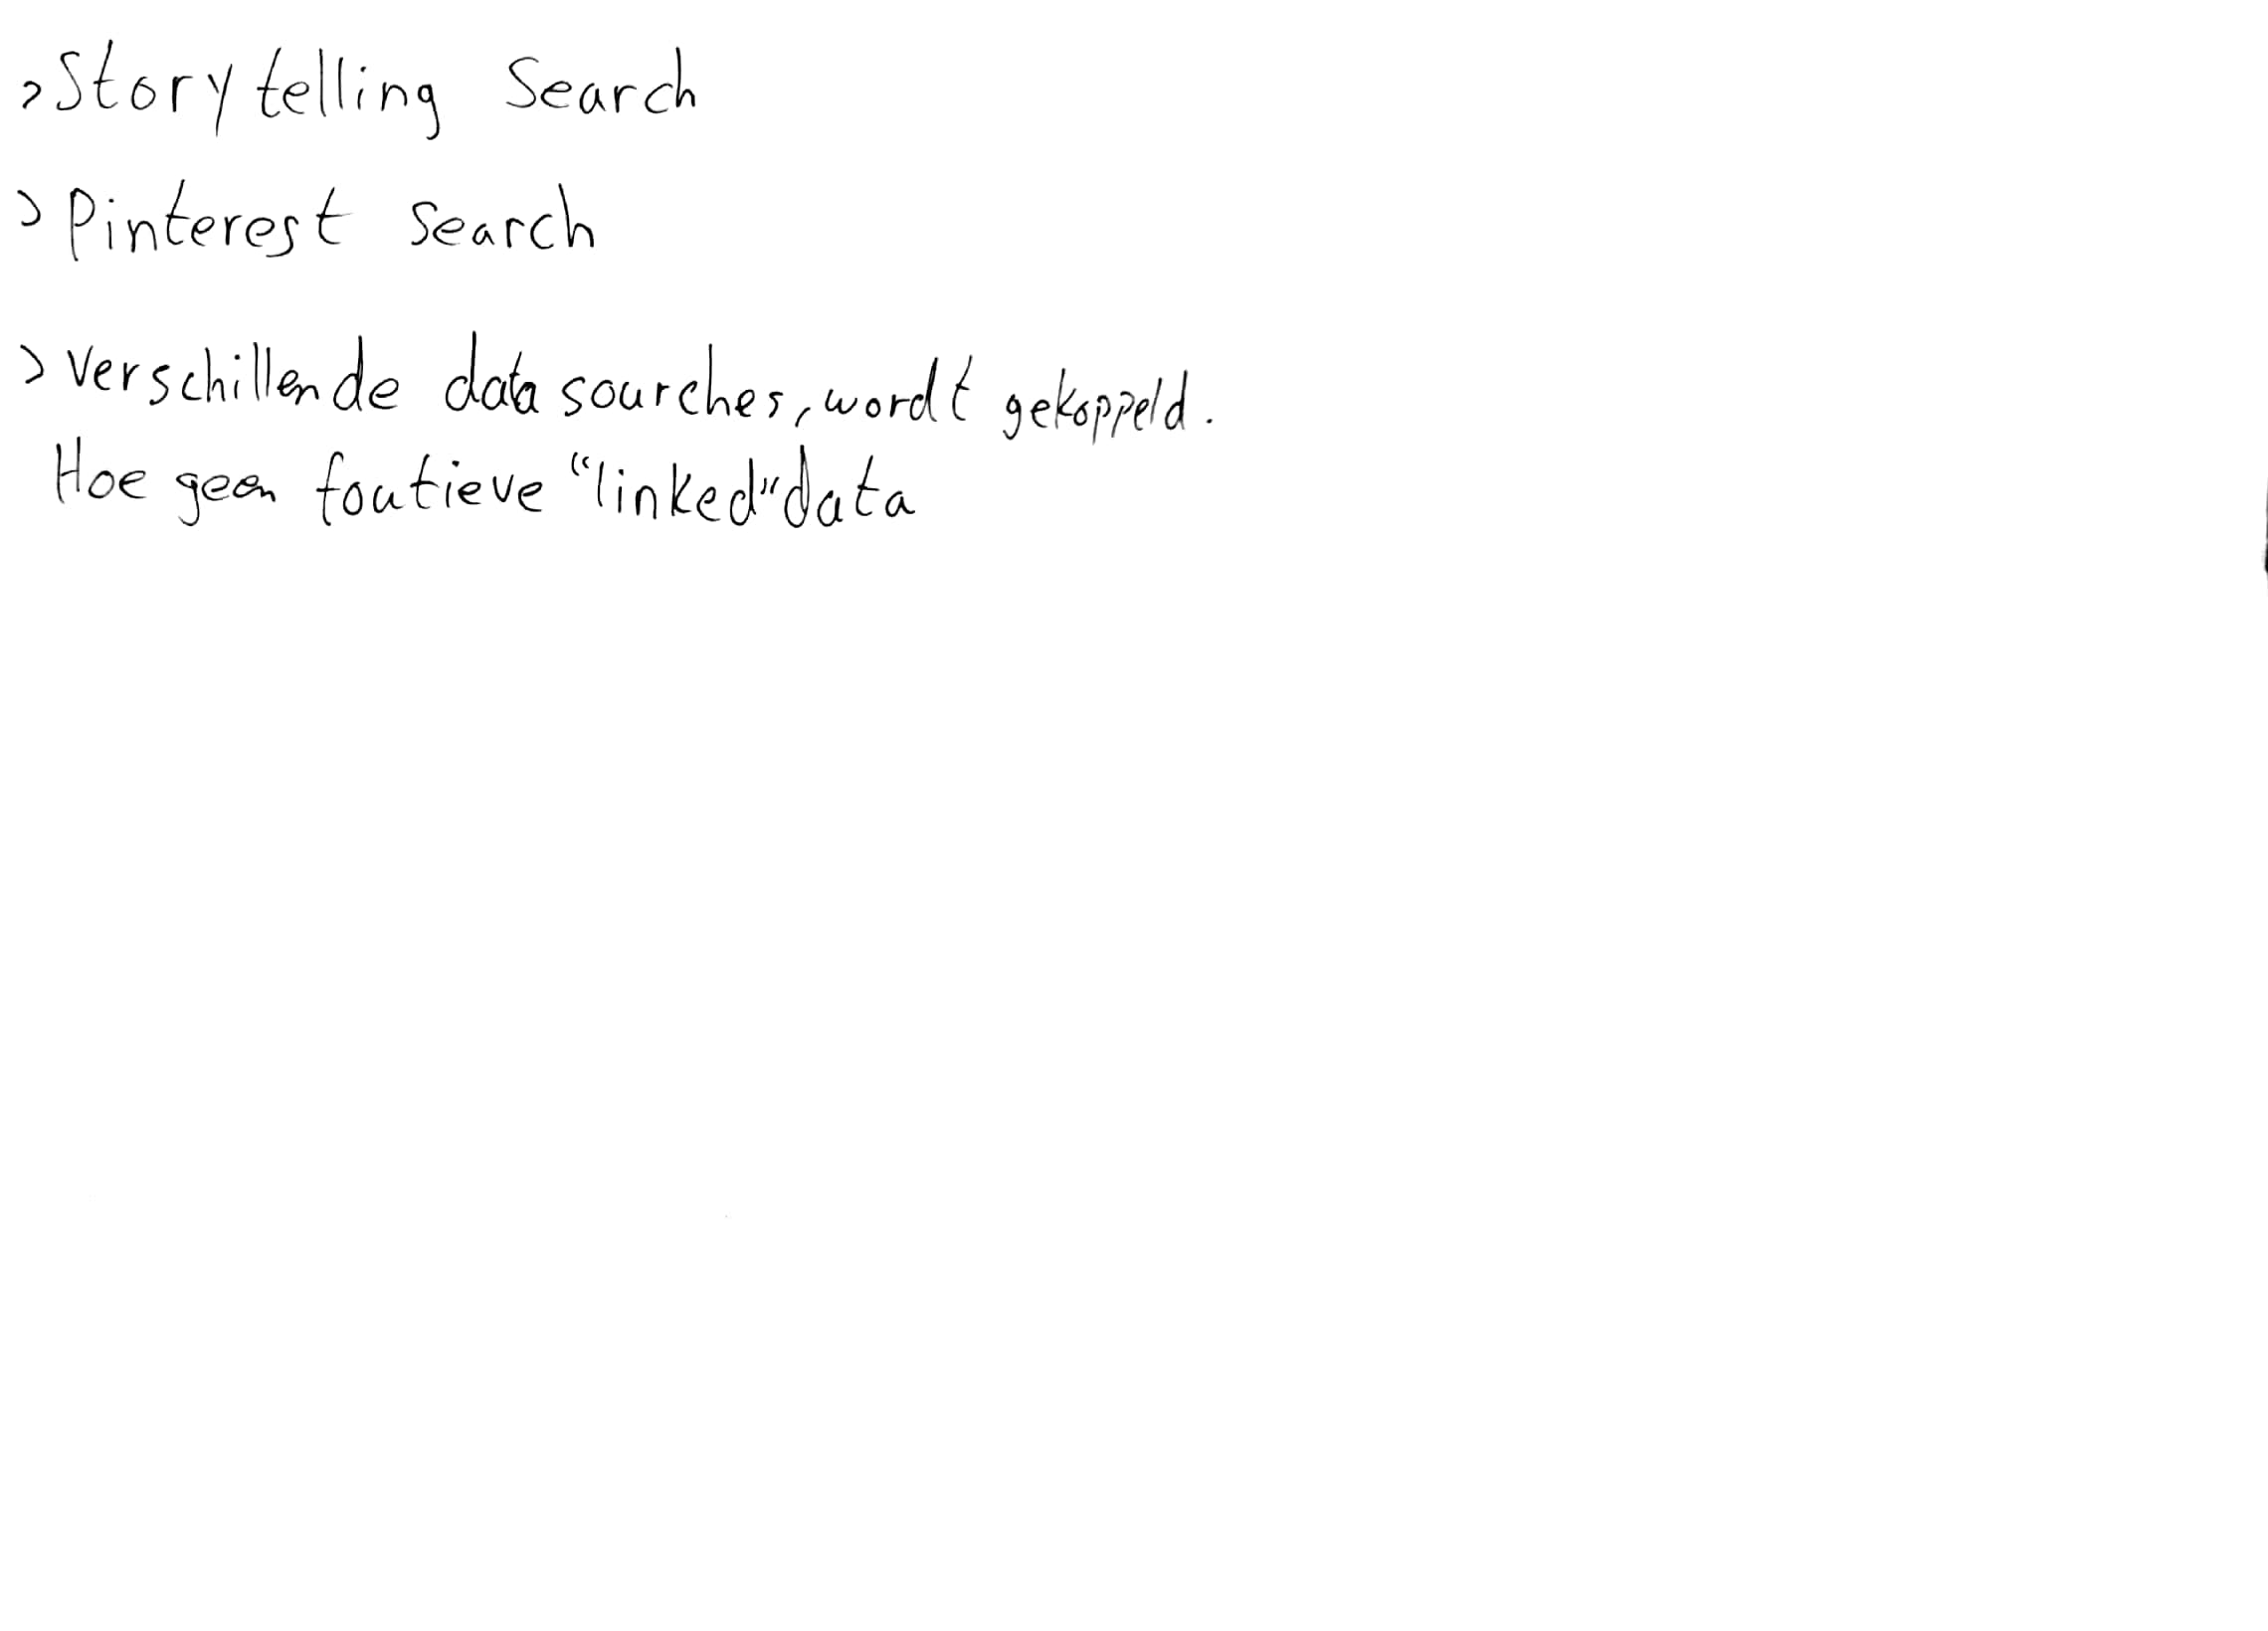 > Storytelling Search
> Pinterest Search
> Verschillende data sourches, wordt gekoppeld.
Hoe geen foutieve "linked" data